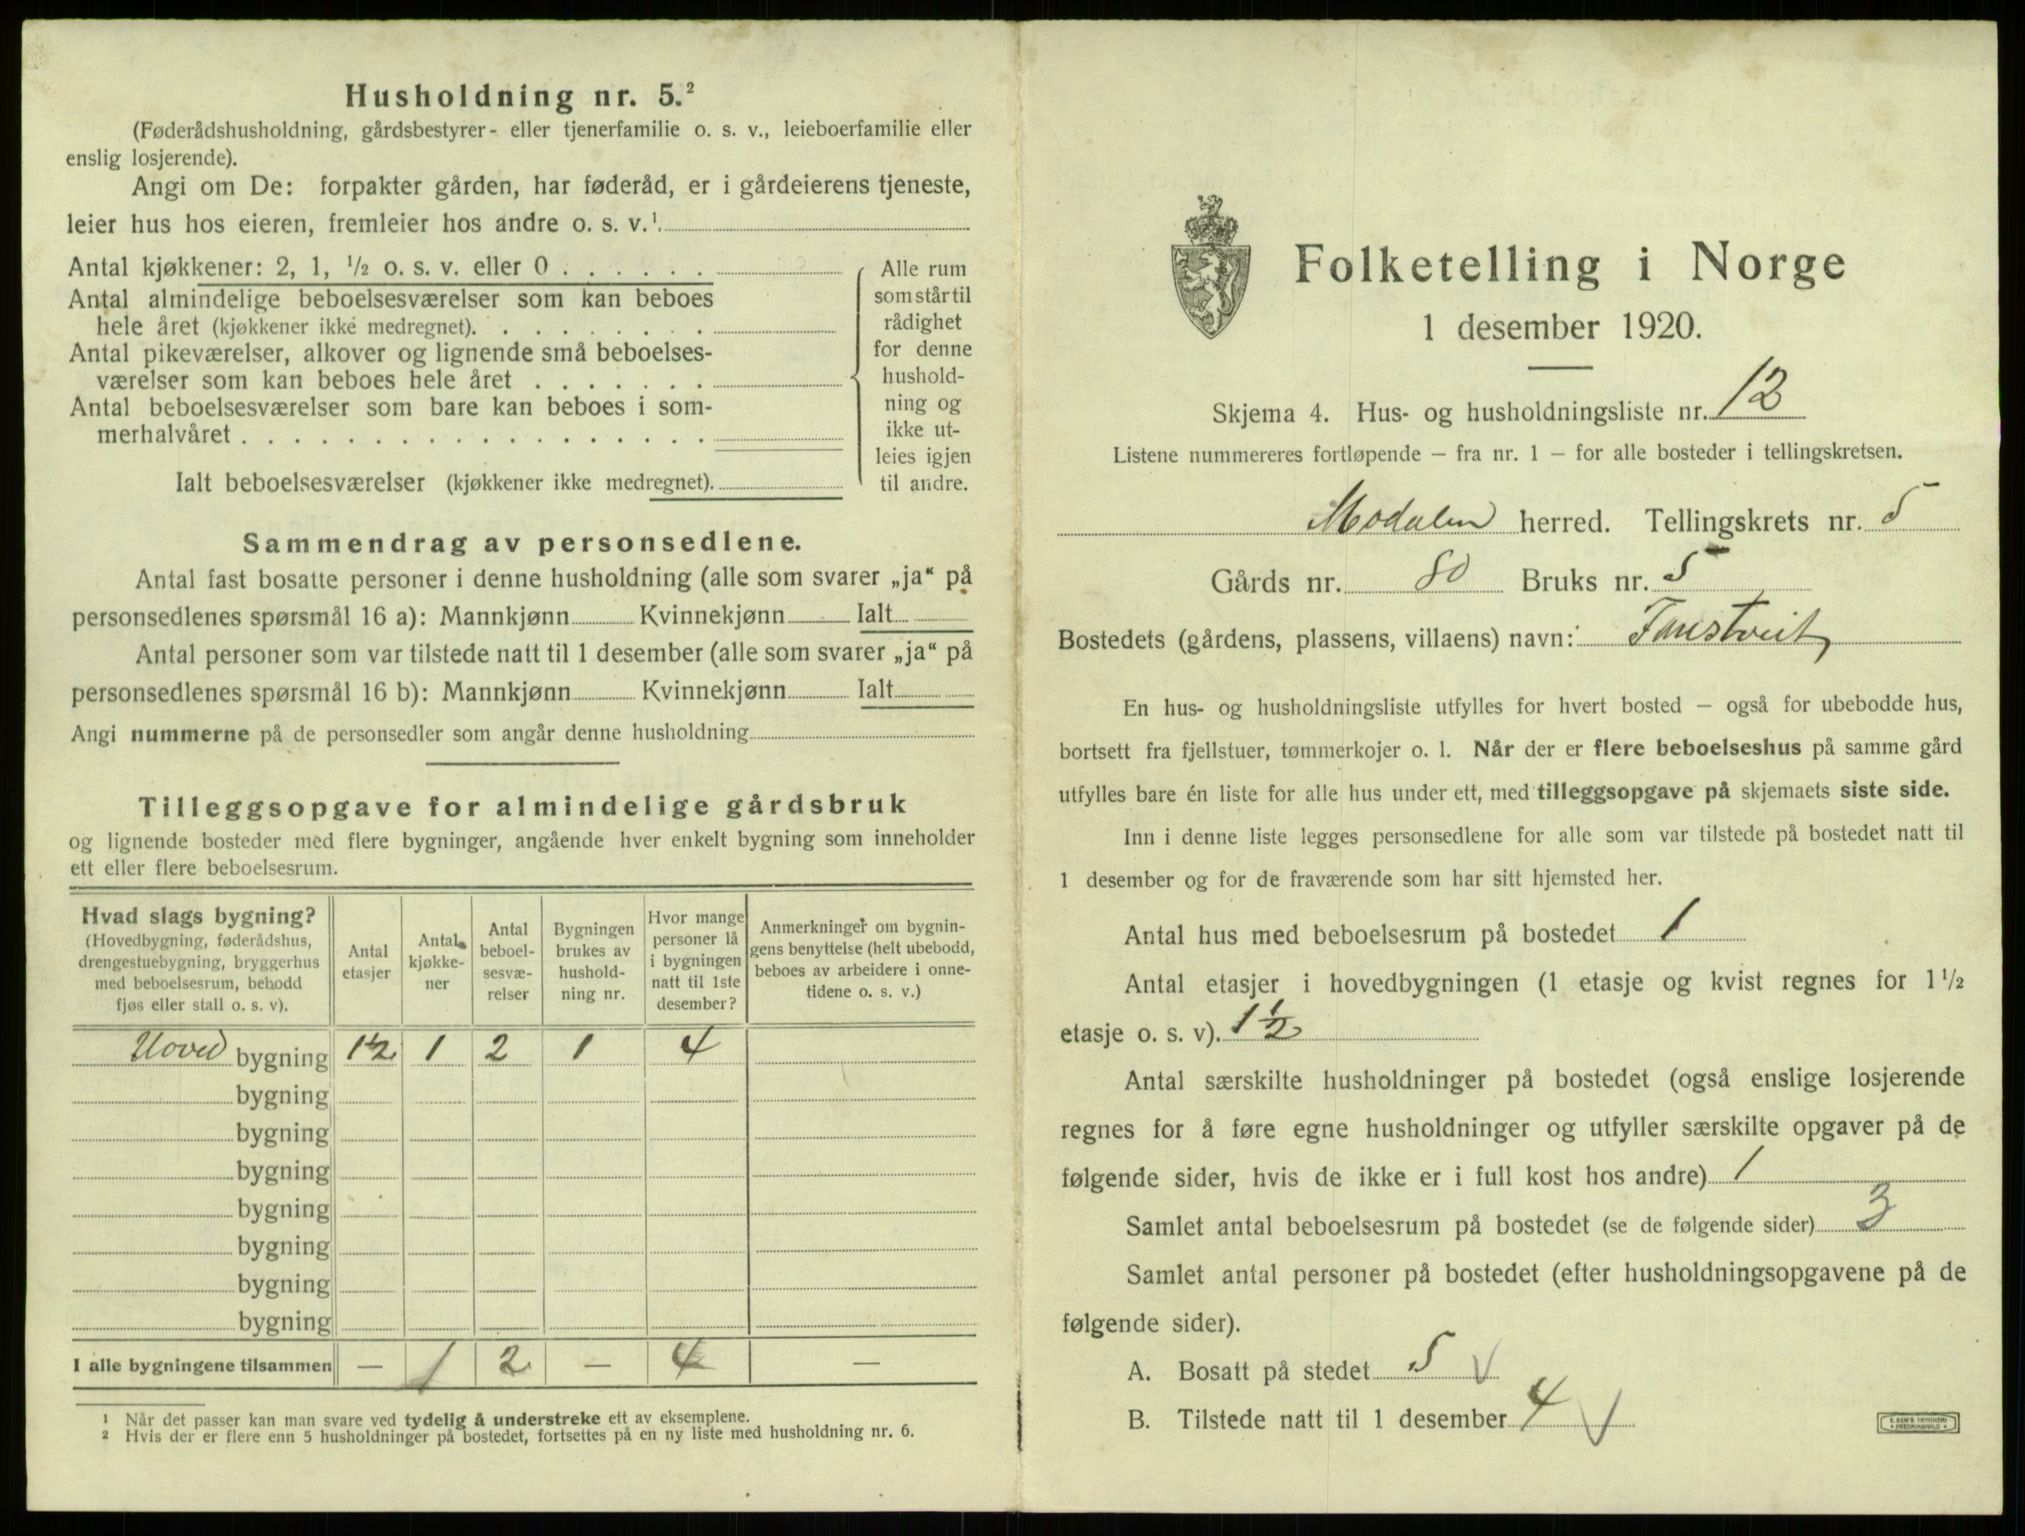 Husholdning nr. 5.²
(Føderådshusholdning, gårdsbestyrer- eller tjenerfamilie o. s. v., leieboerfamilie eller
enslig losjerende).
Angi om De: forpakter gården, har føderåd, er i gårdeierens tjeneste,
leier hus hos eieren, fremleier hos andre o. s. v.¹.
Antal kjøkkener: 2, 1, ½ o. s. v. eller 0
Antal almindelige beboelsesværelser som kan beboes
hele året (kjøkkener ikke medregnet).
Antal pikeværelser, alkover og lignende små beboelses-
værelser som kan beboes hele året
Antal beboelsesværelser som bare kan beboes i som-
merhalvåret
Ialt beboelsesværelser (kjøkkener ikke medregnet).
Alle rum
som står til
rådighet
for denne
hushold-
ning og
ikke ut-
leies igjen
til andre.
Sammendrag av personsedlene.
Antal fast bosatte personer i denne husholdning (alle som svarer „ja“ på
personsedlenes spørsmål 16 a): Mannkjønn Kvinnekjønn Ialt
Antal personer som var tilstede natt til 1 desember (alle som svarer „ja“ på
personsedlenes spørsmål 16 b): Mannkjønn Kvinnekjønn Ialt
Angi nummerne på de personsedler som angår denne husholdning
Tilleggsopgave for almindelige gårdsbruk
og lignende bosteder med flere bygninger, angående hver enkelt bygning som inneholder
ett eller flere beboelsesrum.
Hvad slags bygning?
(Hovedbygning, føderådshus,
drengestuebygning, bryggerhus
med beboelsesrum, bebodd
fjøs eller stall o. s. v).
Antal
etasjer
Antal
kjøkke-
ner
Antal
beboel-
sesvæ-
relser
Bygningen
brukes av
hushold-
ning nr.
Hvor mange
personer lå
i bygningen
natt til 1ste
desember?
Anmerkninger om bygnin-
gens benyttelse (helt ubebodd,
beboes av arbeidere i onne-
tidene o. s. v.)
Hoved bygning 1½ 1 2 1 4
bygning
bygning
bygning
bygning
bygning
bygning
bygning
I alle bygningene tilsammen — 1 2 — 4 —
¹ Når det passer kan man svare ved tydelig å understreke ett av eksemplene.
² Hvis der er flere enn 5 husholdninger på bostedet, fortsettes på en ny liste med husholdning nr. 6.
Folketelling i Norge
1 desember 1920.
Skjema 4. Hus- og husholdningsliste nr. 12
Listene nummereres fortløpende — fra nr. 1 — for alle bosteder i tellingskretsen.
Modalen herred. Tellingskrets nr. 5
Gårds nr. 80 Bruks nr. 5
Bostedets (gårdens, plassens, villaens) navn:
En hus- og husholdningsliste utfylles for hvert bosted — også for ubebodde hus,
bortsett fra fjellstuer, tømmerkojer o. l. Når der er flere beboelseshus på samme gård
utfylles bare én liste for alle hus under ett, med tilleggsopgave på skjemaets siste side.
Inn i denne liste legges personsedlene for alle som var tilstede på bostedet natt til
1 desember og for de fraværende som har sitt hjemsted her.
Antal hus med beboelsesrum på bostedet 1
Antal etasjer i hovedbygningen (1 etasje og kvist regnes for 1½
etasje o. s. v). 1½
Antal særskilte husholdninger på bostedet (også enslige losjerende
regnes for å føre egne husholdninger og utfyller særskilte opgaver på de
følgende sider, hvis de ikke er i full kost hos andre) 1
Samlet antal beboelsesrum på bostedet (se de følgende sider) 3
Samlet antal personer på bostedet (efter husholdningsopgavene på de
følgende sider).
A. Bosatt på stedet 5 √
B. Tilstede natt til 1 desember 4 √